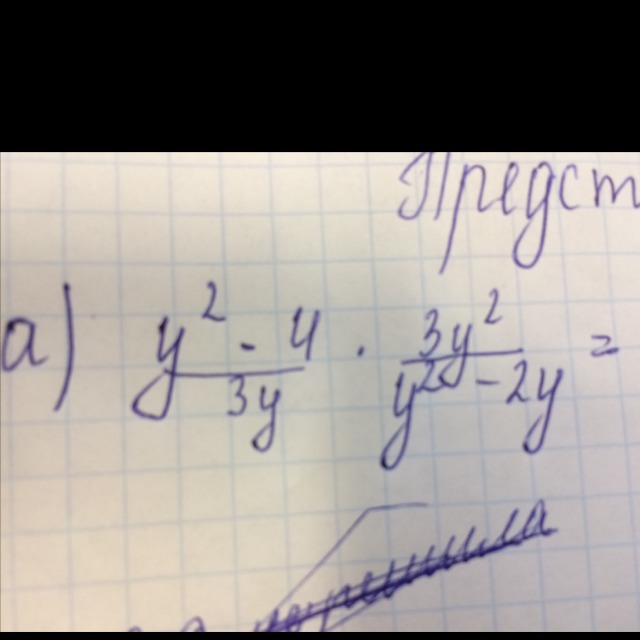 Предст
а) y² - 4 / 3y · 3y² / y² - 2y =